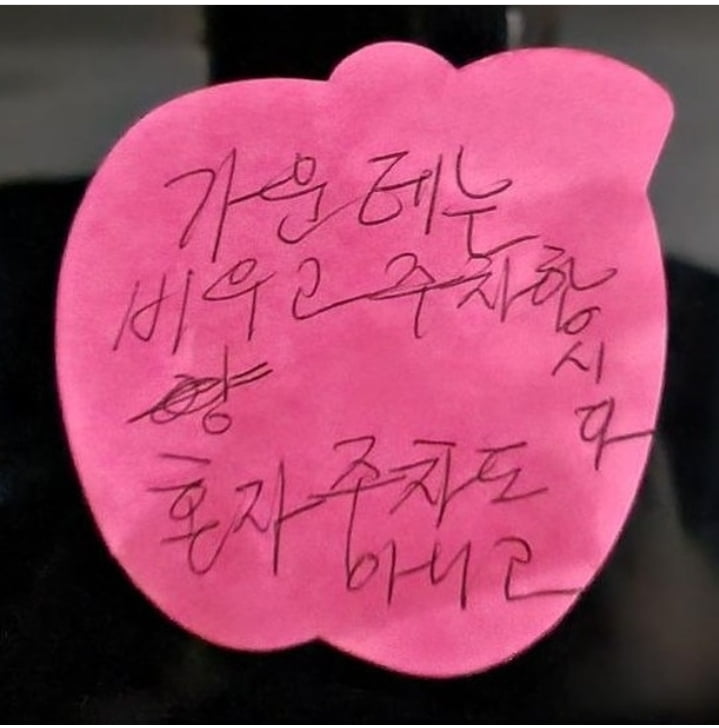 가운테는
비우고 주차합시다
혼자 주차도
아니고